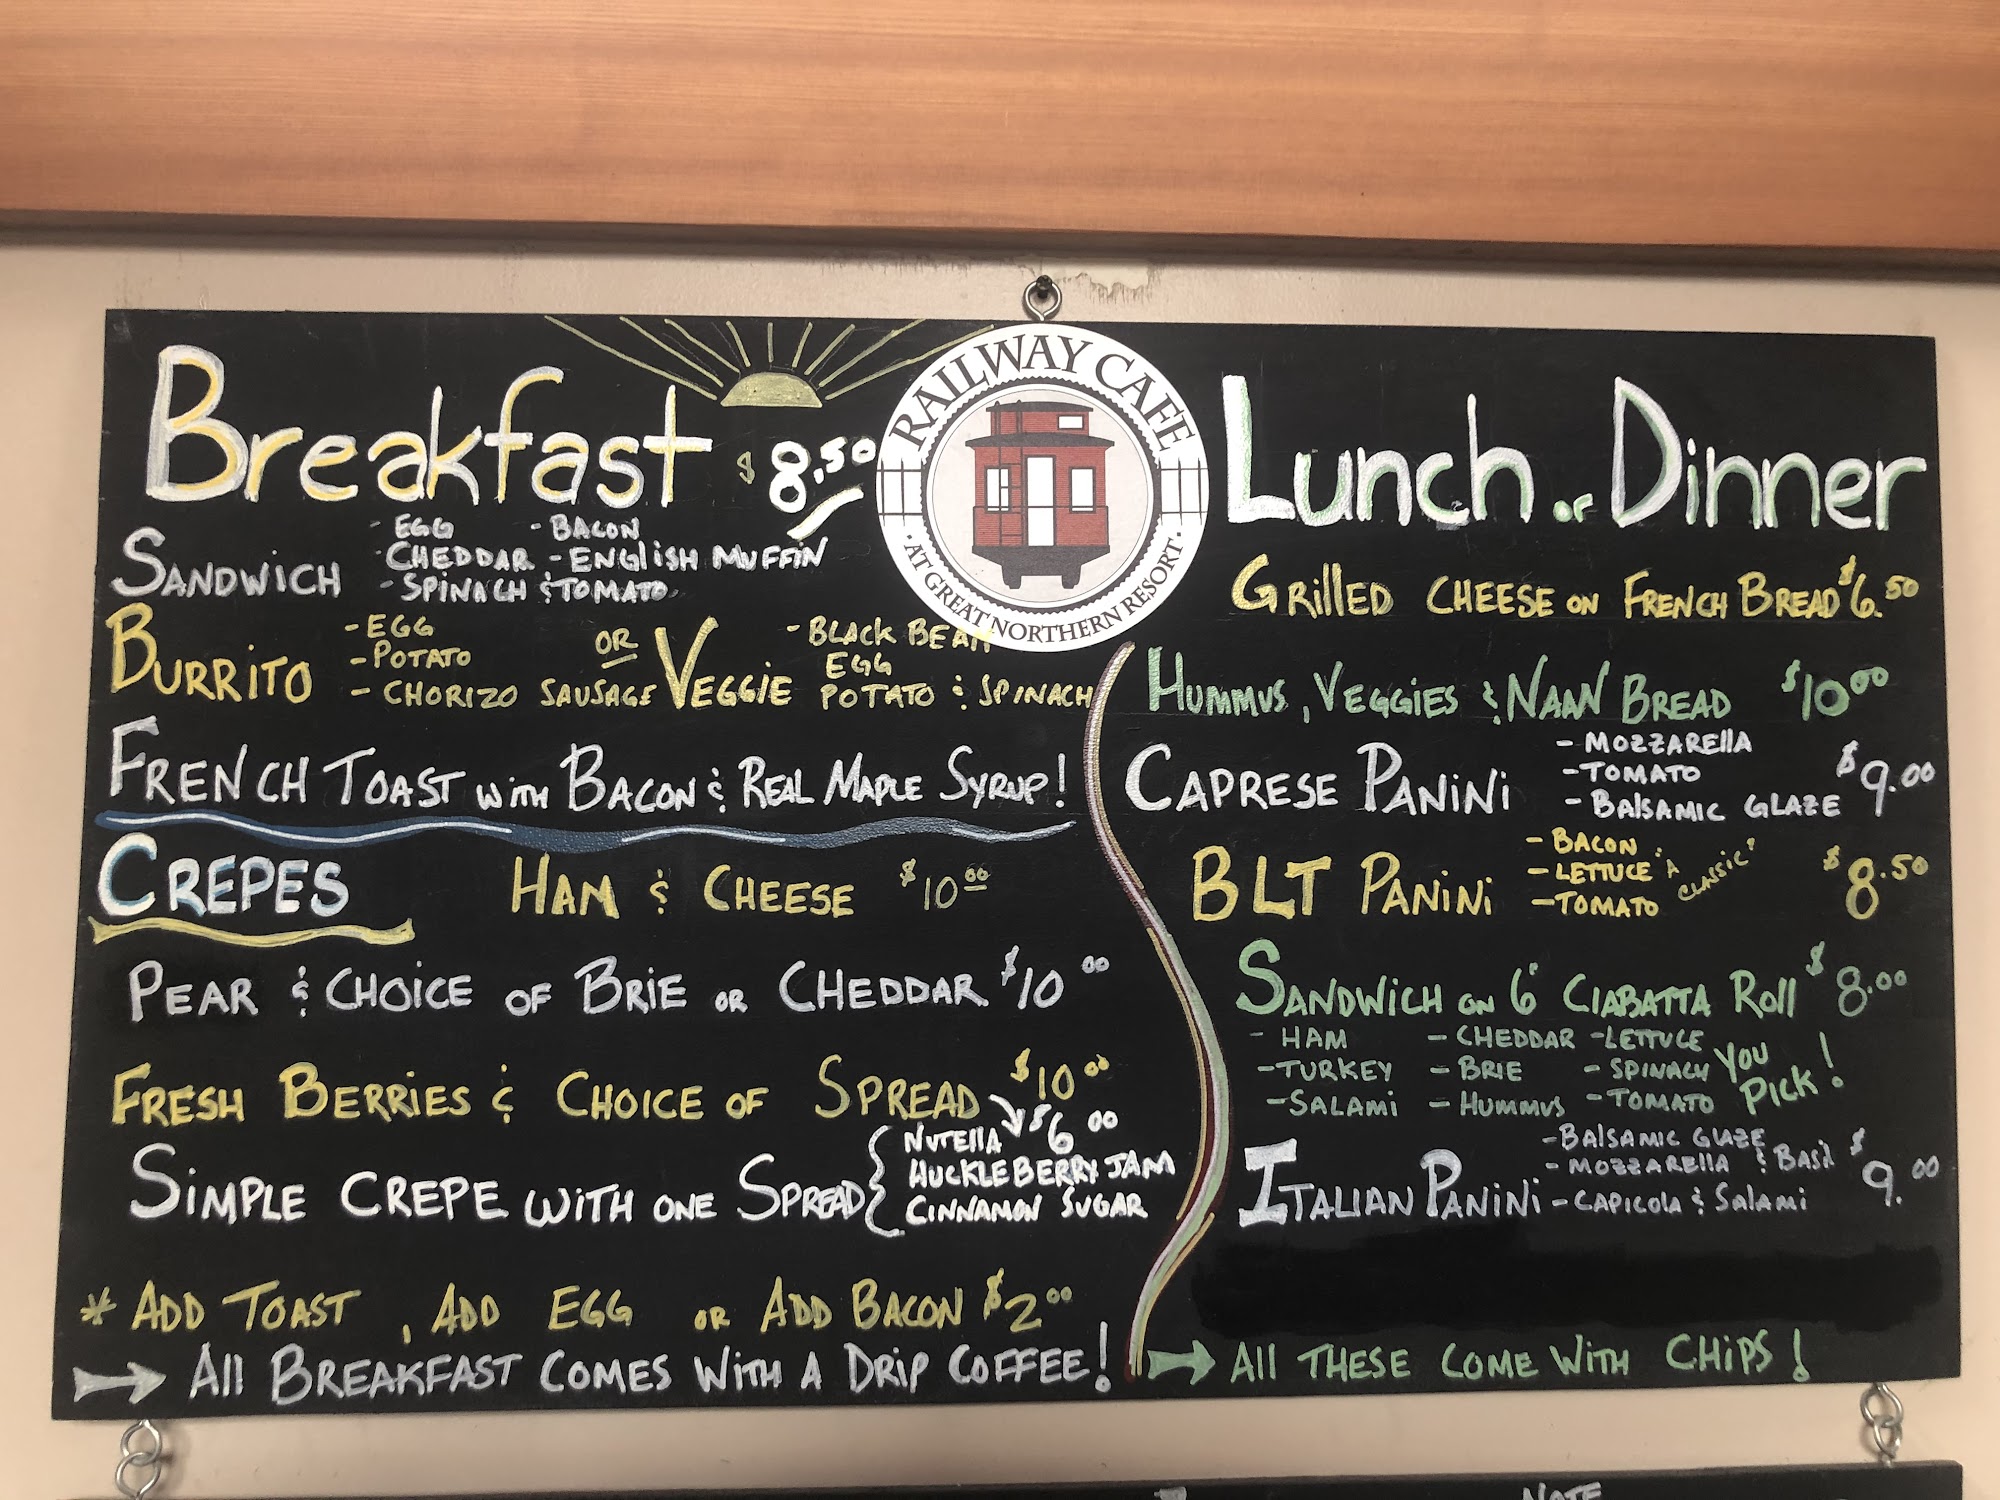 RAILWAY CAFE
· AT GREAT NORTHERN RESORT ·
Breakfast $8.50
SANDWICH
- EGG - BACON
- CHEDDAR - ENGLISH MUFFIN
- SPINACH & TOMATO
BURRITO
- EGG
- POTATO
- CHORIZO SAUSAGE
OR VEGGIE
- BLACK BEAN
EGG
POTATO & SPINACH
FRENCH TOAST WITH BACON & REAL MAPLE SYRUP!
CREPES
HAM & CHEESE $10.00
PEAR & CHOICE OF BRIE OR CHEDDAR $10.00
FRESH BERRIES & CHOICE OF SPREAD $10.00
SIMPLE CREPE WITH ONE SPREAD $6.00
NUTELLA
HUCKLEBERRY JAM
CINNAMON SUGAR
* ADD TOAST, ADD EGG OR ADD BACON $2.00
All BREAKFAST COMES WITH A DRIP COFFEE!
Lunch or Dinner
GRILLED CHEESE ON FRENCH BREAD $6.50
HUMMUS, VEGGIES & NAAN BREAD $10.00
CAPRESE PANINI $9.00
- MOZZARELLA
- TOMATO
- BALSAMIC GLAZE
BLT PANINI $8.50
- BACON
- LETTUCE "A CLASSIC"
- TOMATO
SANDWICH ON 6" CIABATTA ROLL $8.00
- HAM - CHEDDAR - LETTUCE
- TURKEY - BRIE - SPINACH
- SALAMI - HUMMUS - TOMATO
YOU PICK!
ITALIAN PANINI $9.00
- BALSAMIC GLAZE
- MOZZARELLA & BASIL
- CAPICOLA & SALAMI
All THESE COME WITH CHIPS!
NOTE